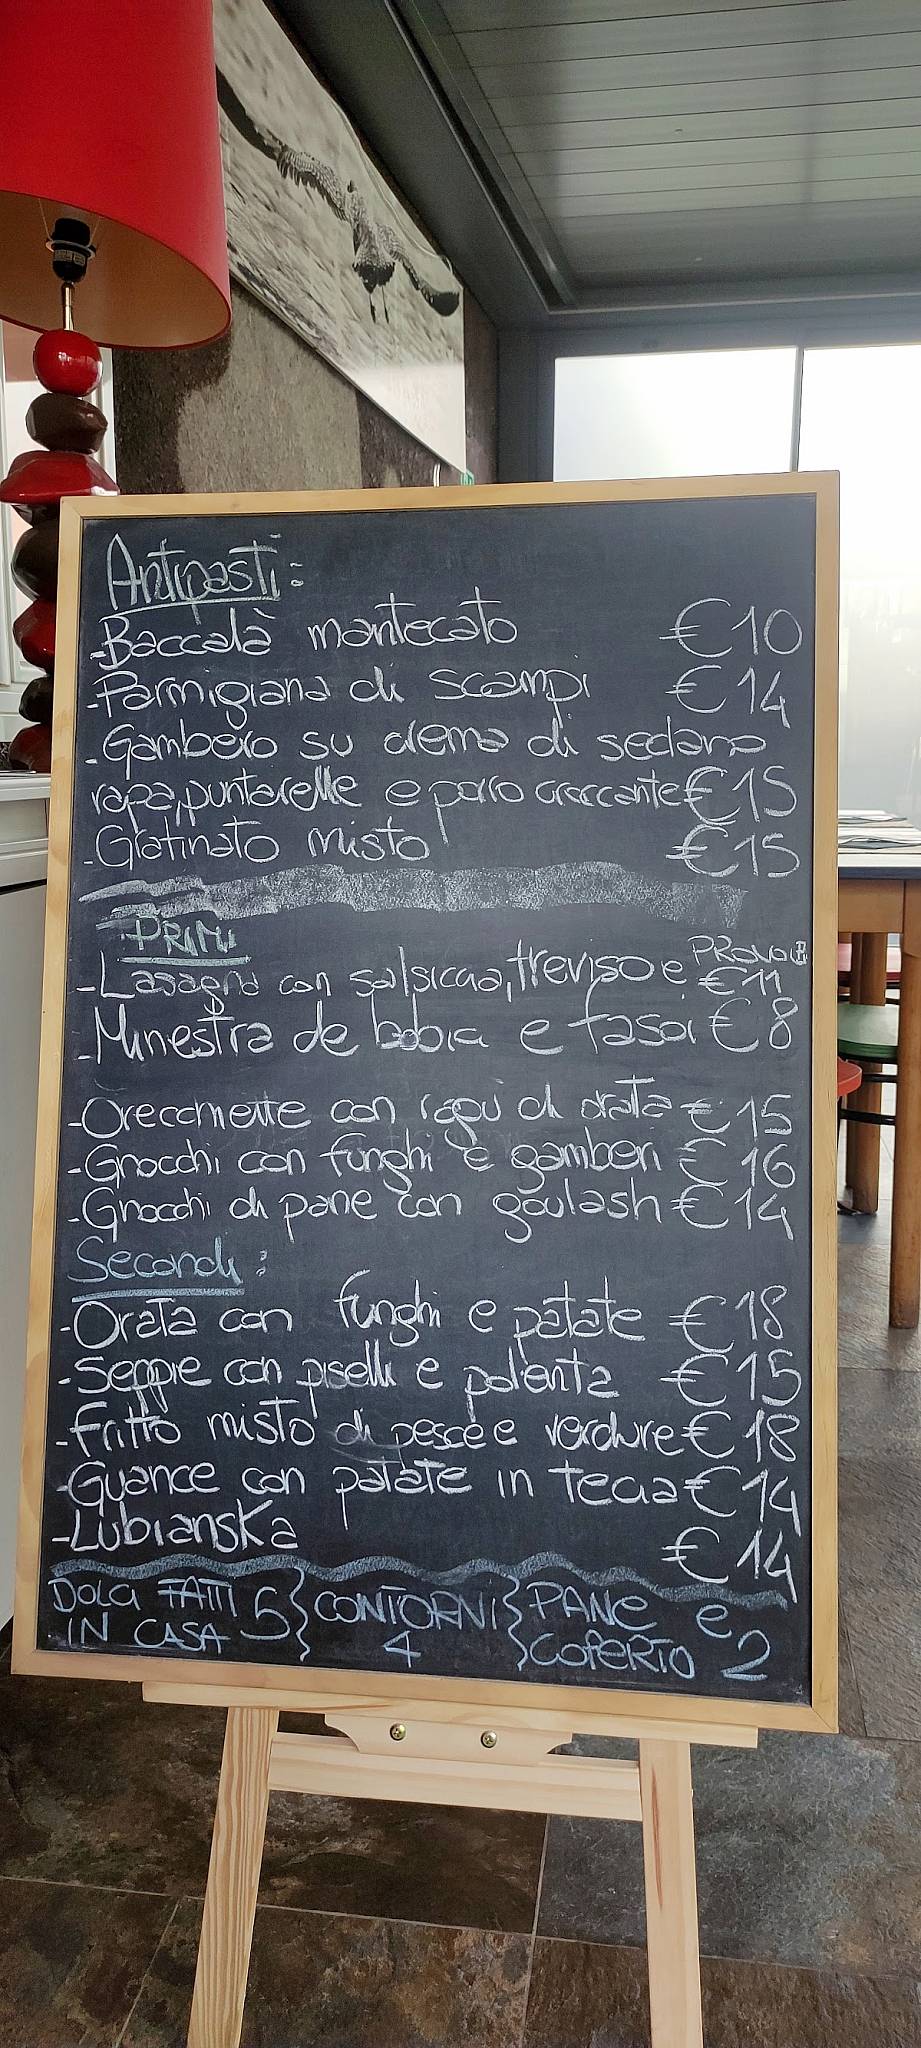 Antipasti:
-Baccalà mantecato €10
-Parmigiana di scampi €14
-Gambero su crema di sedano
rapa, puntarelle e porro croccante €15
-Gratinato misto €15
PRIMI
-Lasagna con salsiccia, treviso e PROVOLA €11
-Minestra de bobici e fasoi €8
-Orecchiette con ragù di orata €15
-Gnocchi con funghi e gamberi €16
-Gnocchi di pane con goulash €14
Secondi:
-Orata con funghi e patate €18
-Seppie con piselli e polenta €15
-Fritto misto di pesce e verdure €18
-Guance con patate in tecia €14
-Lubianska €14
DOLCI FATTI IN CASA 5 } CONTORNI 4 } PANE e COPERTO 2